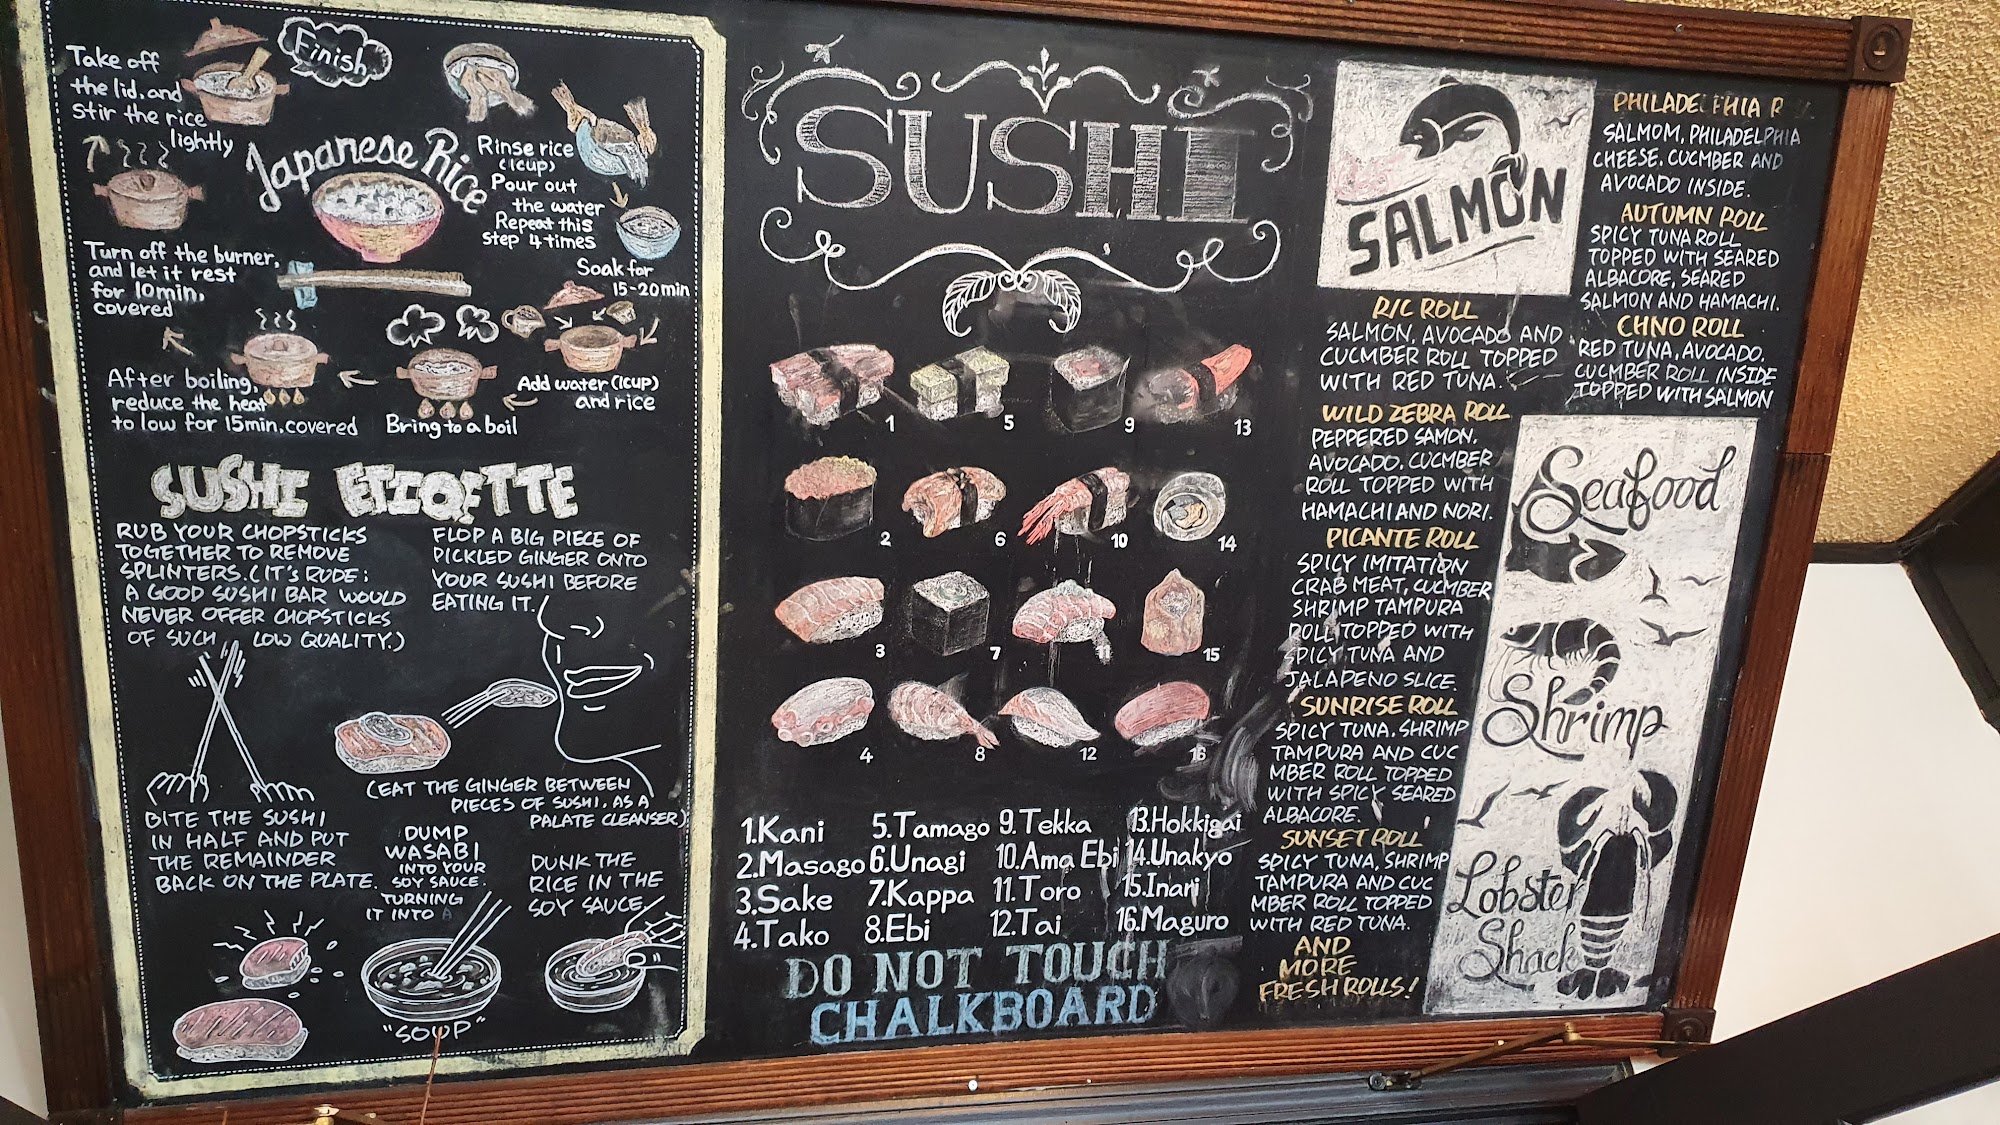 Finish
Take off
the lid, and
stir the rice
lightly
Japanese Rice
Rinse rice
(1cup)
Pour out
the water
Repeat this
step 4 times
Soak for
15-20min
Add water (1cup)
and rice
Bring to a boil
After boiling,
reduce the heat
to low for 15min, covered
Turn off the burner,
and let it rest
for 10min,
covered
SUSHI ETIQETTE
RUB YOUR CHOPSTICKS
TOGETHER TO REMOVE
SPLINTERS. (IT'S RUDE:
A GOOD SUSHI BAR WOULD
NEVER OFFER CHOPSTICKS
OF SUCH LOW QUALITY.)
FLOP A BIG PIECE OF
PICKLED GINGER ONTO
YOUR SUSHI BEFORE
EATING IT.
(EAT THE GINGER BETWEEN
PIECES OF SUSHI, AS A
PALATE CLEANSER)
BITE THE SUSHI
IN HALF AND PUT
THE REMAINDER
BACK ON THE PLATE.
DUMP
WASABI
INTO YOUR
SOY SAUCE.
TURNING
IT INTO A
"SOUP"
DUNK THE
RICE IN THE
SOY SAUCE
SUSHI
1
5
9
13
2
6
10
14
3
7
11
15
4
8
12
16
1.Kani
2.Masago
3.Sake
4.Tako
5.Tamago
6.Unagi
7.Kappa
8.Ebi
9.Tekka
10.Ama Ebi
11.Toro
12.Tai
13.Hokkigai
14.Unakyo
15.Inari
16.Maguro
DO NOT TOUCH
CHALKBOARD
SALMON
R/C ROLL
SALMON, AVOCADO AND
CUCMBER ROLL TOPPED
WITH RED TUNA.
WILD ZEBRA ROLL
PEPPERED SAMON,
AVOCADO, CUCMBER
ROLL TOPPED WITH
HAMACHI AND NORI.
PICANTE ROLL
SPICY IMITATION
CRAB MEAT, CUCMBER
SHRIMP TAMPURA
ROLL TOPPED WITH
SPICY TUNA AND
JALAPENO SLICE.
SUNRISE ROLL
SPICY TUNA, SHRIMP
TAMPURA AND CUC
MBER ROLL TOPPED
WITH SPICY SEARED
ALBACORE.
SUNSET ROLL
SPICY TUNA, SHRIMP
TAMPURA AND CUC
MBER ROLL TOPPED
WITH RED TUNA.
AND
MORE
FRESH ROLLS!
PHILADELPHIA R
SALMOM, PHILADELPHIA
CHEESE, CUCMBER AND
AVOCADO INSIDE.
AUTUMN ROLL
SPICY TUNA ROLL
TOPPED WITH SEARED
ALBACORE, SEARED
SALMON AND HAMACHI.
CHNO ROLL
RED TUNA, AVOCADO,
CUCMBER ROLL INSIDE
TOPPED WITH SALMON
Seafood
Shrimp
Lobster
Shack